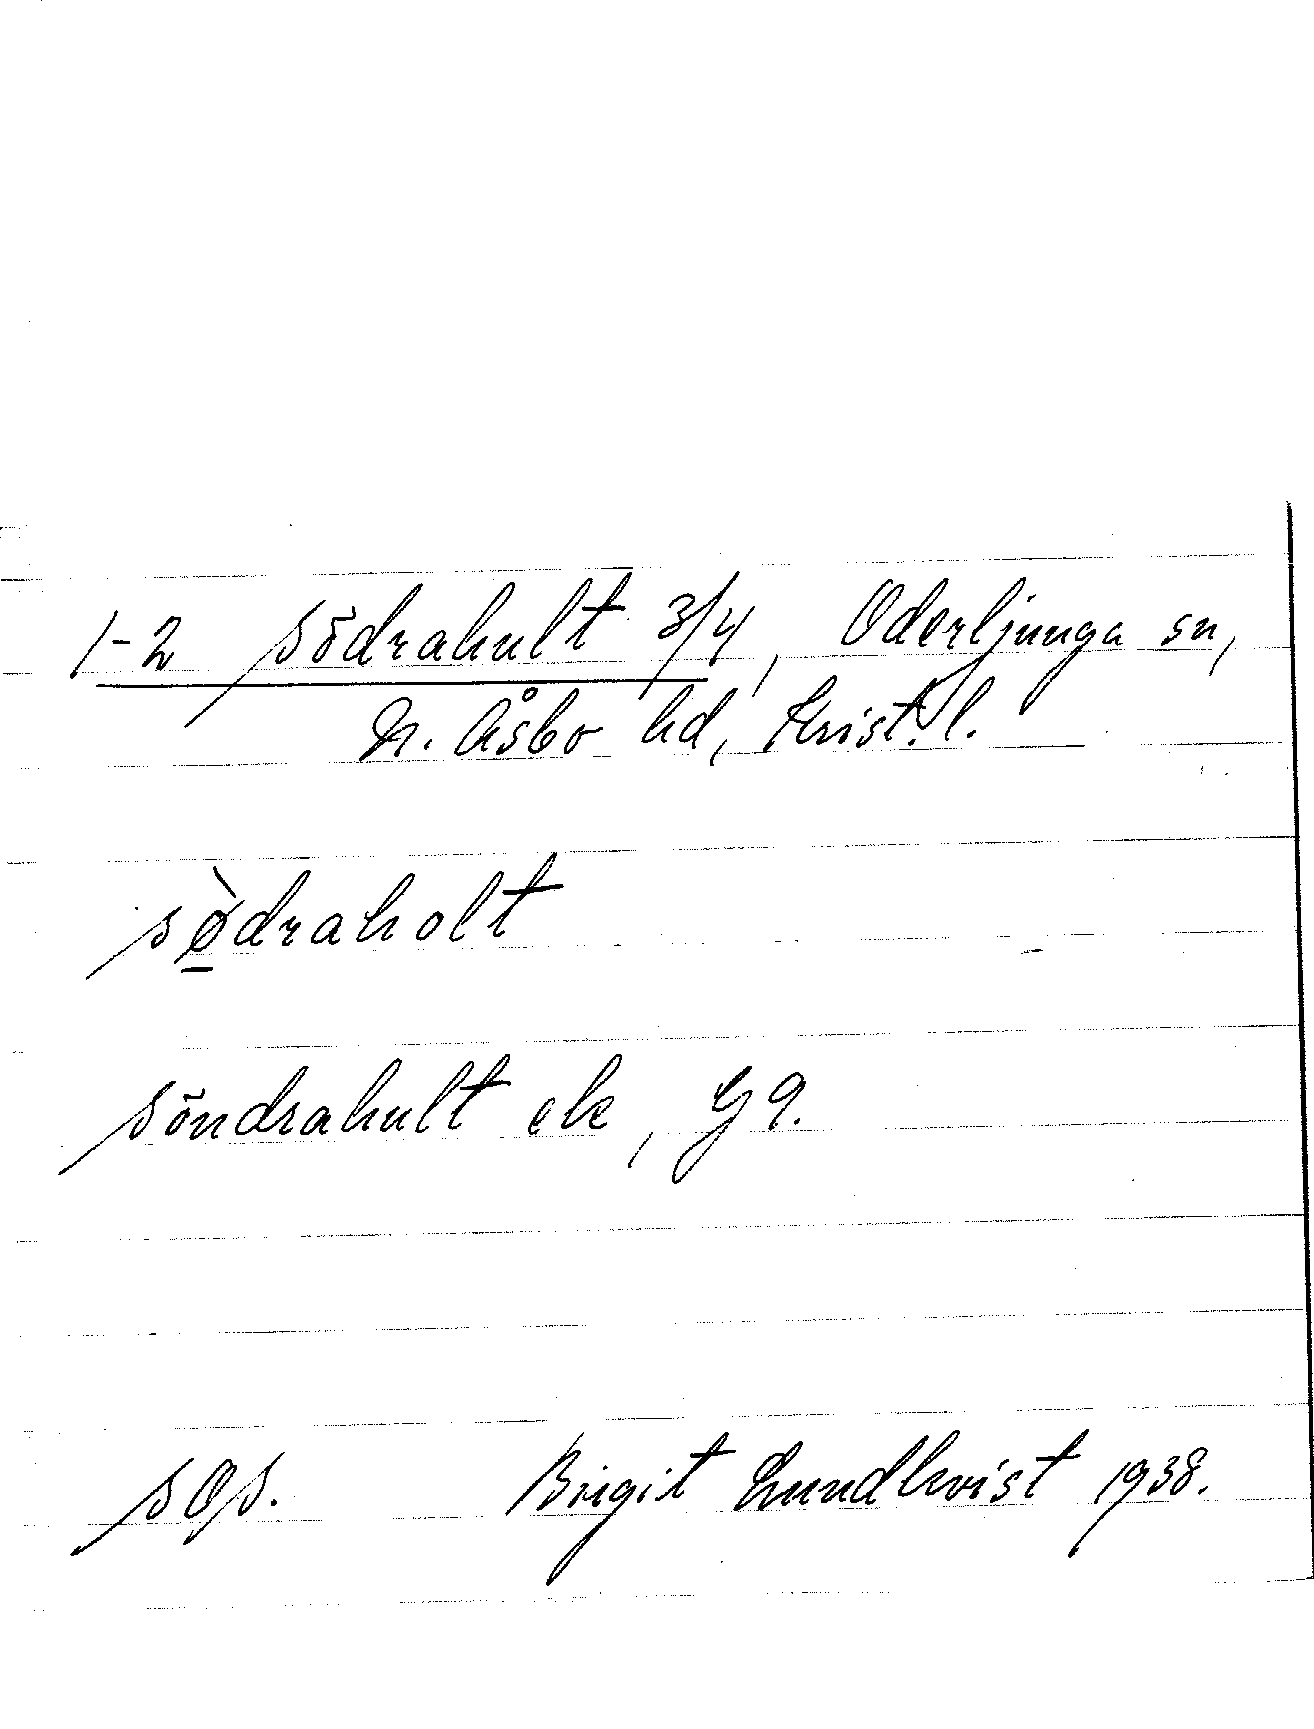 1-2 Södrahult 3/4, Oderljunga sn,
N. Åsbo hd, Krist. l.
sø̱̀draholt
Söndrahult ek, G9.
Birgit Lundkvist 1938.